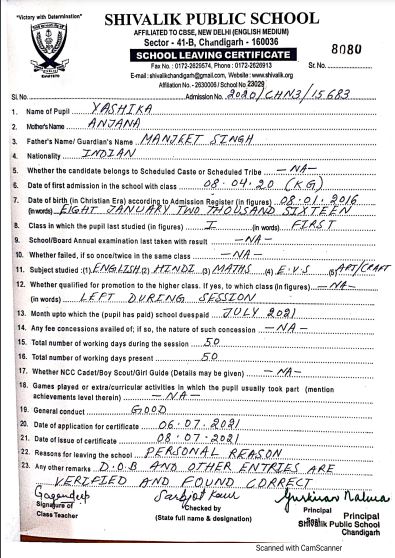 "Victory with Determination"
SHIVALIK PUBLIC SCHOOL
AFFILIATED TO CBSE, NEW DELHI (ENGLISH MEDIUM)
Sector - 41-B, Chandigarh - 160036
SCHOOL LEAVING CERTIFICATE
8080
Fax No. : 0172-2629574, Phone : 0172-2626913
Sr. No.
E-mail : shivalikchandigarh@gmail.com, Website : www.shivalik.org
Affiliation No. - 2630006 / School No 23029
Sl. No. Admission No. 2020/CHN3/15683
1. Name of Pupil YASHIKA
2. Mother's Name ANJANA
3. Father's Name/ Guardian's Name MANJEET SINGH
4. Nationality INDIAN
5. Whether the candidate belongs to Scheduled Caste or Scheduled Tribe -NA-
6. Date of first admission in the school with class 08.04.20 (KG)
7. Date of birth (in Christian Era) according to Admission Register (in figures) 08.01.2016
(in words) EIGHT JANUARY TWO THOUSAND SIXTEEN
8. Class in which the pupil last studied (in figures) I (in words) FIRST
9. School/Board Annual examination last taken with result -NA-
10. Whether failed, if so once/twice in the same class -NA-
11. Subject studied :(1) ENGLISH (2) HINDI (3) MATHS (4) E.V.S (5) ART/CRAFT
12. Whether qualified for promotion to the higher class. If yes, to which class (in figures) -NA-
(in words) LEFT DURING SESSION
13. Month upto which the (pupil has paid) school dues paid JULY 2021
14. Any fee concessions availed of; if so, the nature of such concession -NA-
15. Total number of working days during the session 50
16. Total number of working days present 50
17. Whether NCC Cadet/Boy Scout/Girl Guide (Details may be given) -NA-
18. Games played or extra/curricular activities in which the pupil usually took part (mention
achievements level therein) -NA-
19. General conduct GOOD
20. Date of application for certificate 06.07.2021
21. Date of issue of certificate 08.07.2021
22. Reasons for leaving the school PERSONAL REASON
23. Any other remarks D.O.B AND OTHER ENTRIES ARE
VERIFIED AND FOUND CORRECT
Gagandeep Sarbjot Kaur
Signature of Class Teacher
Checked by
(State full name & designation)
Principal
Seal
Principal
Shivalik Public School
Chandigarh
Scanned with CamScanner